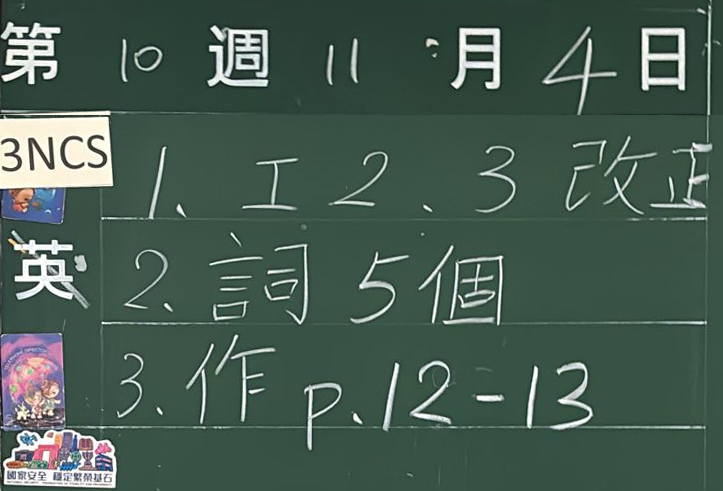 第 10 週 11 月 4 日
3NCS
1、工 2、3 改正
英
2、詞 5個
3、作 p.12-13
國家安全 穩定繁榮基石